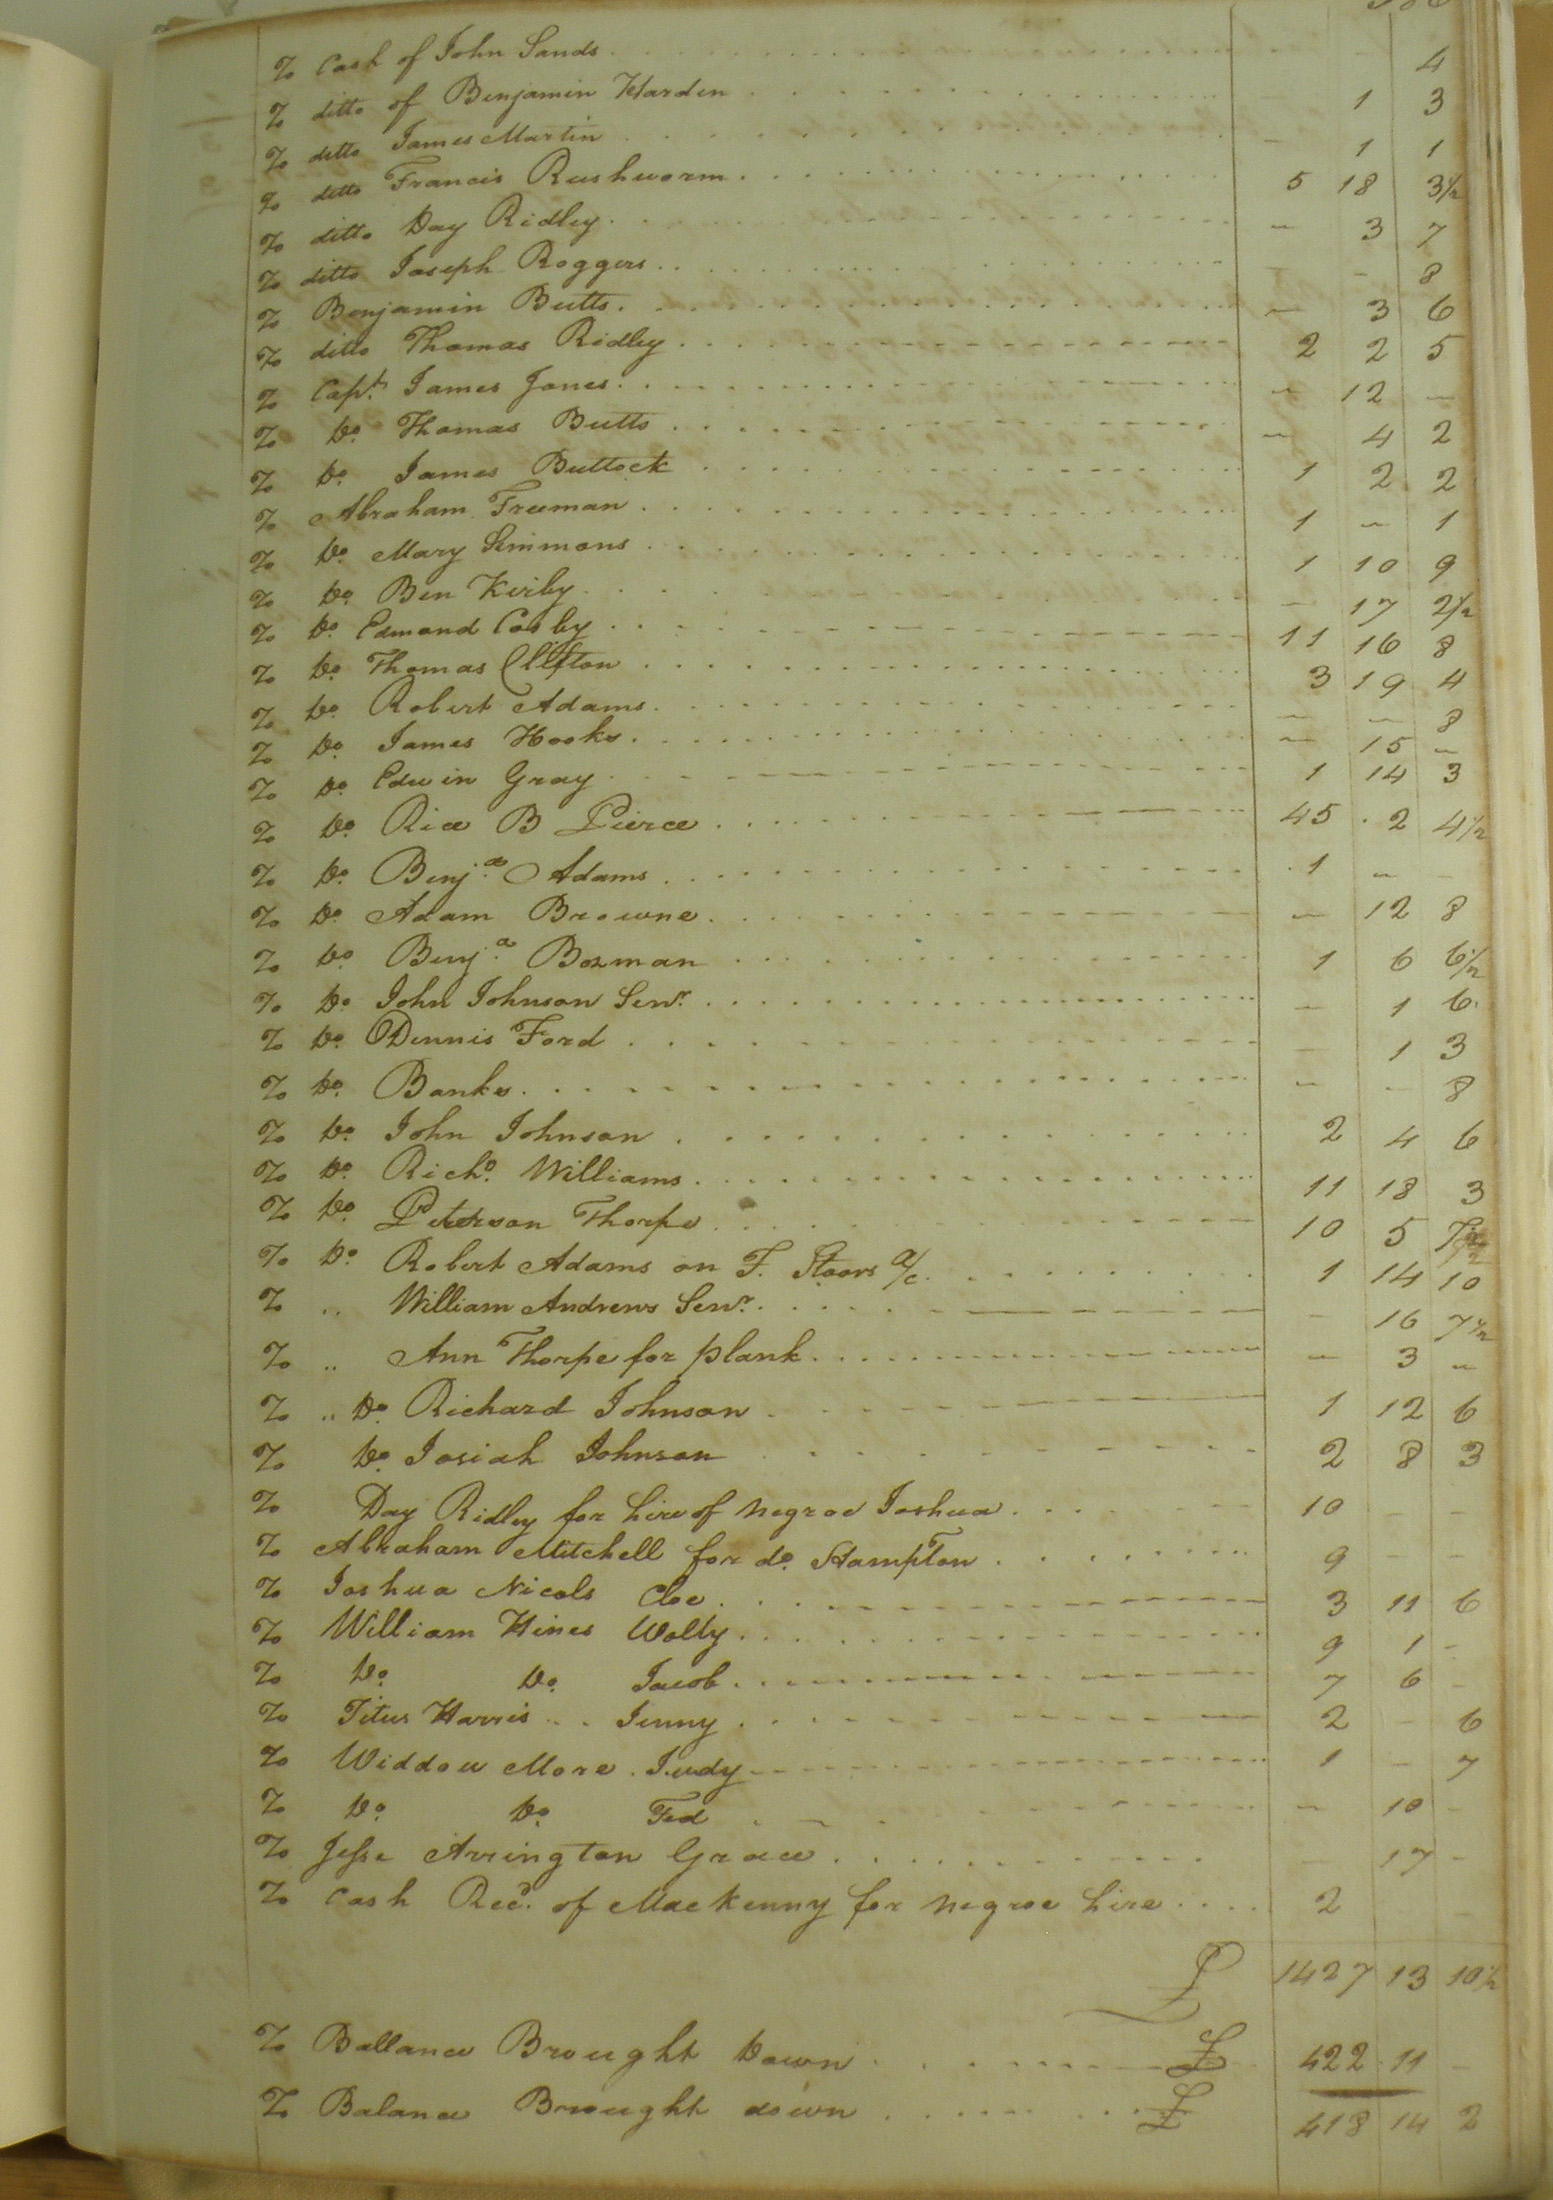 To Cash of John Sands 4
To ditto of Benjamin Harden 1 3
To ditto James Martin - 1 1
To ditto Francis Rushworm 5 18 3½
To ditto Day Ridley - 3 7
To ditto Joseph Roggers - - 8
To Benjamin Butts - 3 6
To ditto Thomas Ridley 2 2 5
To Capt. James Jones - 12 -
To Do. Thomas Butts - 4 2
To Do. James Buttock 1 2 2
To Abraham Freeman 1 - 1
To Do. Mary Simmons 1 10 9
To Do. Ben Kirby - 17 2½
To Do. Edmond Cosby 11 16 8
To Do. Thomas Clifton 3 19 4
To Do. Robert Adams - - 8
To Do. James Hooks - 15 -
To Do. Edwin Gray 1 14 3
To Do. Rice B Pierce 45 2 4½
To Do. Benja. Adams 1 - -
To Do. Adam Browne - 12 8
To Do. Benja. Bozman 1 6 6½
To Do. John Johnson Senr. - 1 6
To Do. Dennis Ford - 1 3
To Do. Banks - - 8
To Do. John Johnson 2 4 6
To Do. Richd. Williams 11 18 3
To Do. Peterson Thorpe 10 5 7½
To Do. Robert Adams on F. Stoors a/c 1 14 10
To .. William Andrews Senr. - 16 7½
To .. Ann Thorpe for plank - 3 -
To .. Do. Richard Johnson 1 12 6
To Do. Josiah Johnson 2 8 3
To Day Ridley for hire of negroe Joshua 10 - -
To Abraham Mitchell for do. Hampton 9 - -
To Joshua Nicols Cloe 3 11 6
To William Hines Wolly 9 1 -
To Do. Do. Jacob 7 6 -
To Titus Harris .. Jenny 2 - 6
To Widdow More . Judy 1 - 7
To Do. Do. Ted - 10 -
To Jesse Arrington Grace - 17 -
To Cash Recd. of Mackenny for negroe hire 2 -
£ 1427 13 10½
To Ballance Brought Down £ 422 11 -
To Balance Brought down £ 418 14 2